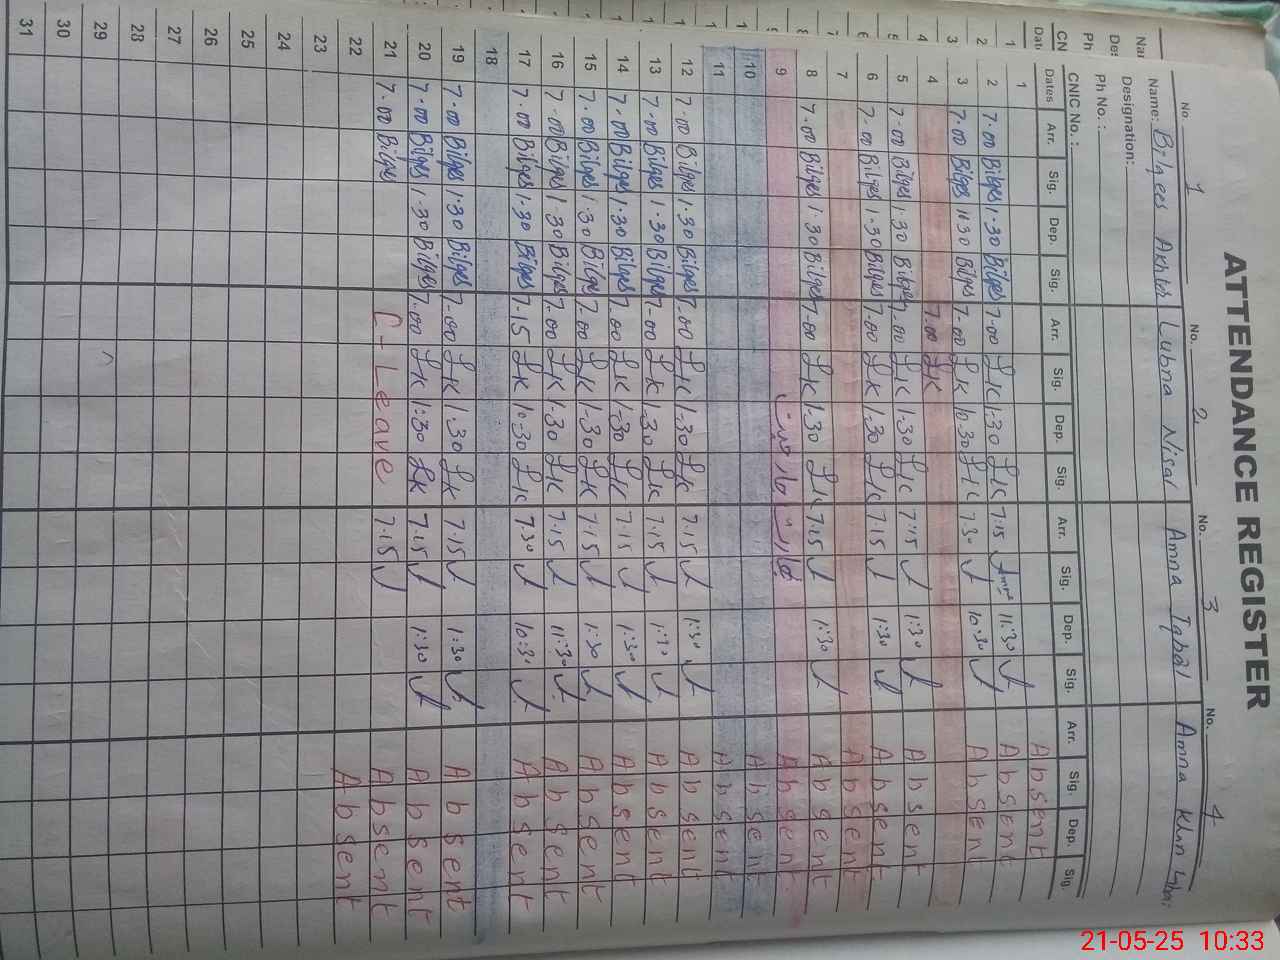 ATTENDANCE REGISTER
No. 1 No. 2 No. 3 No. 4
Name: Bilqees Akhter Lubna Nisar Amna Iqbal Amna Khan
Designation:
Ph No.:
CNIC No.:
Dates Arr. Sig. Dep. Sig. Arr. Sig. Dep. Sig. Arr. Sig. Dep. Sig. Arr. Sig. Dep. Sig.
1 Absent
2 7.00 Bilqes 1.30 Bilqes 7.00 LK 1.30 LK 7:15 11:30 Absent
3 7.00 Bilqes 10.30 Bilqes 7.00 LK 10.30 LK 7.30 10:30 Absent
4 7.00 LK
5 7.00 Bilqes 1.30 Bilqes 7.00 LK 1.30 LK 7:15 1:30 Absent
6 7.00 Bilqes 1.30 Bilqes 7.00 LK 1.30 LK 7.15 1:30 Absent
7 Absent
8 7.00 Bilqes 1.30 Bilqes 7.00 LK 1.30 LK 7.15 1:30 Absent
9 Absent
10 Absent
11 Absent
12 7.00 Bilqes 1.30 Bilqes 7.00 LK 1.30 LK 7.15 1:30 Absent
13 7.00 Bilqes 1.30 Bilqes 7.00 LK 1.30 LK 7.15 1:30 Absent
14 7.00 Bilqes 1.30 Bilqes 7.00 LK 1.30 LK 7.15 1:30 Absent
15 7.00 Bilqes 1.30 Bilqes 7.00 LK 1.30 LK 7.15 1:30 Absent
16 7.00 Bilqes 1.30 Bilqes 7.00 LK 1.30 LK 7.15 11:30 Absent
17 7.00 Bilqes 1.30 Bilqes 7.15 LK 10.30 LK 7.30 10:30 Absent
18
19 7.00 Bilqes 1.30 Bilqes 7.00 LK 1.30 LK 7.15 1:30 Absent
20 7.00 Bilqes 1.30 Bilqes 7.00 LK 1:30 LK 7.15 1:30 Absent
21 7.00 Bilqes C-Leave 7.15 Absent
22 Absent
23
24
25
26
27
28
29
30
31
21-05-25 10:33